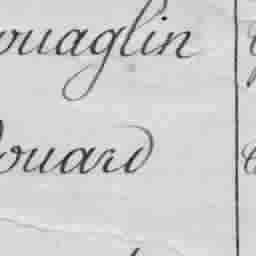 ouaglin
ouard